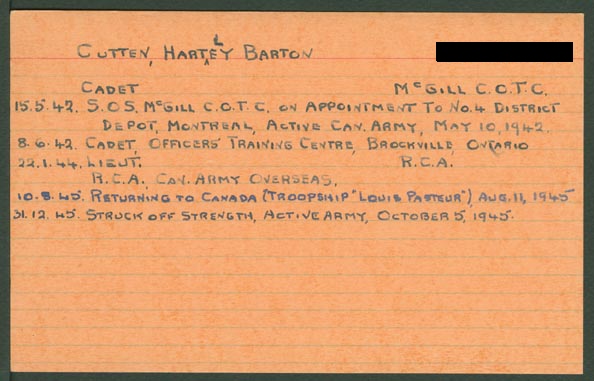 CUTTEN, HARTLEY BARTON
CADET McGILL C.O.T.C.
15.5.42. S.O.S. McGILL C.O.T.C. ON APPOINTMENT TO NO.4 DISTRICT
DEPOT, MONTREAL, ACTIVE CAN. ARMY, MAY 10, 1942.
8.6.42. CADET, OFFICERS' TRAINING CENTRE, BROCKVILLE, ONTARIO
22.1.44. LIEUT. R.C.A.
R.C.A. CAN. ARMY OVERSEAS,
10.8.45. RETURNING TO CANADA (TROOPSHIP "LOUIS PASTEUR") AUG. 11, 1945
31.12.45. STRUCK OFF STRENGTH, ACTIVE ARMY, OCTOBER 5, 1945.